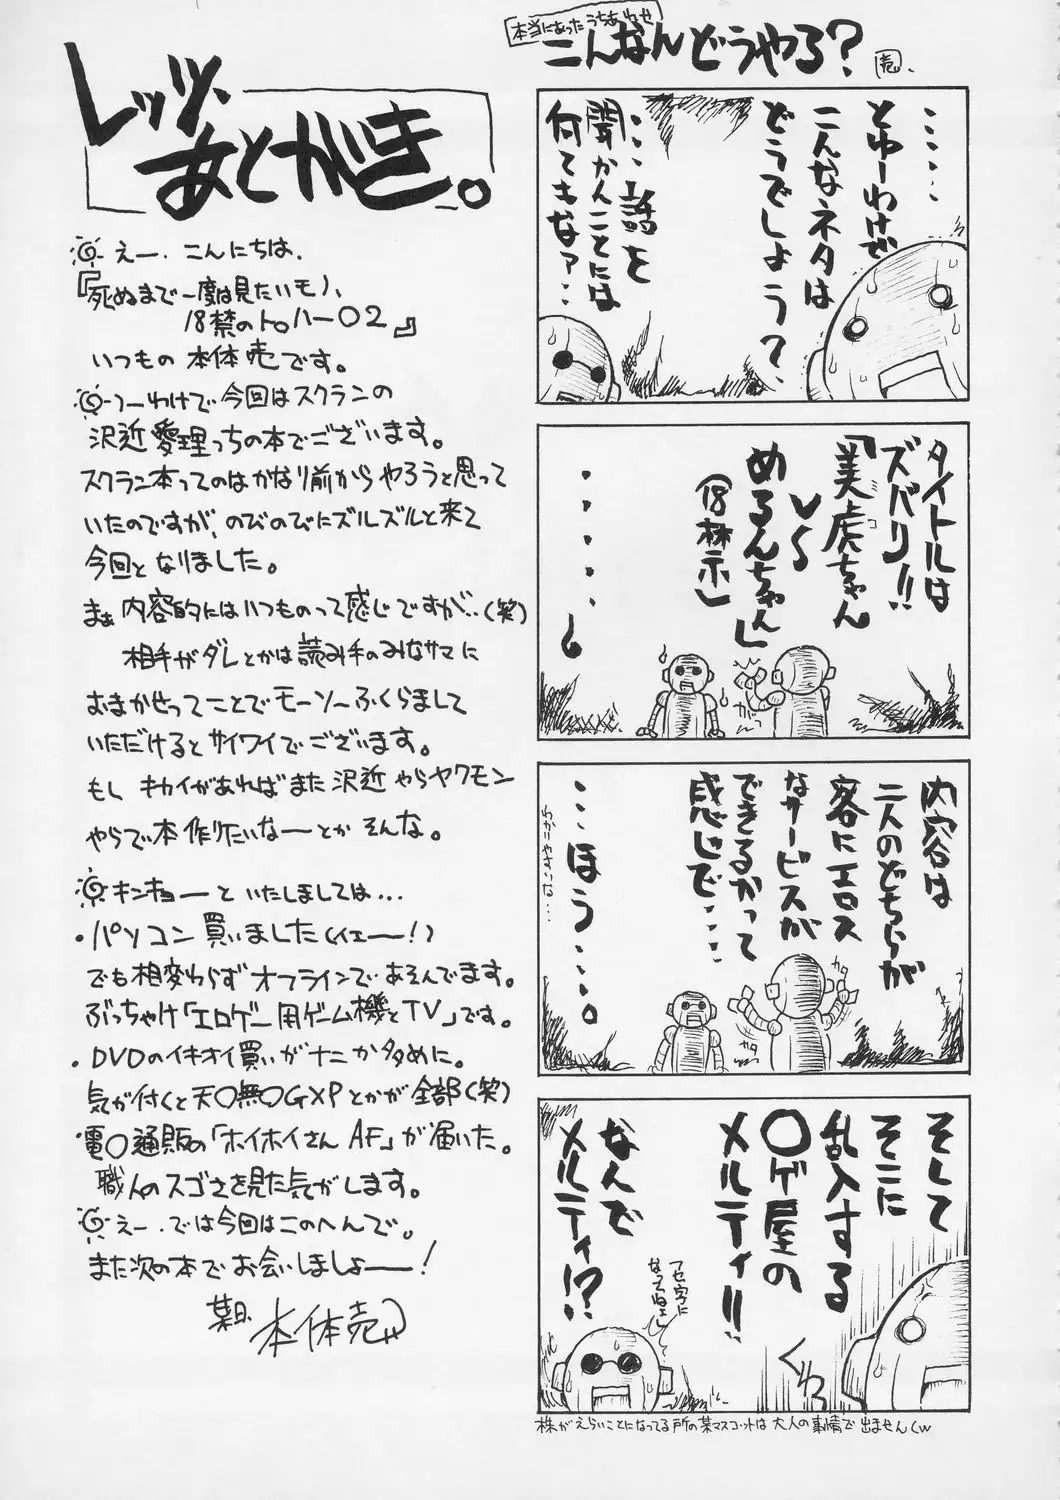 本当にあったうちあわせ
こんなんどうやる？
売.
・・・・・
とゆーわけで
こんなネタは
どうでしょう？
・・・話を
聞かんことには
何てもなァ・・・
タイトルは
ズバリ!!
「美虎ちゃん
ミコ
VS
めるんちゃん」
(18禁)
内容は
二人のどちらが
客にエロス
なサービスが
できるかって
感じで・・・・
・・・ほう・・・・。
わかりやすいな・・・
カタ
カタ
そして
そこに
乱入する
〇ゲ屋の
メルティ!!
なんで
メルティ!?
フセ字に
なってねェし
ぐわっ
株がえらいことになってる所の某マスコットは大人の事情で出ませんくw
レッツ、
あとがき。
えー、こんにちは、
『死ぬまで一度は見たいモノ、
18禁のトロハー02』
いつもの 本体売です。
つーわけで今回はスクランの
沢近愛理っちの本でございます。
スクラン本ってのはかなり前からやろうと思って
いたのですが、のびのびにズルズルと来て
今回となりました。
まぁ内容的にはいつものって感じですが・・(笑)
相手がダレとかは読み手のみなサマに
むまかせってことでモーソーふくらまして
いただけるとサイワイでございます。
もしキカイがあればまた沢近やらヤクモン
やらで本作りたいなーとかそんな。
キンキョーといたしましては・・・
・パソコン買いました(イエー!)
でも相変わらずオフラインであそんでます。
ぶっちゃけ「エロゲー用ゲーム機とTV」です。
・DVDのイキオイ買いがナニか多めに。
気が付くと天〇無〇GXPとかが全部(笑)
電〇通販の「ホイホイさんAF」が届いた。
職人のスゴさを見た気がします。
えー、では今回はこのへんで。
また次の本でお会いしましょー!
某日、本体売